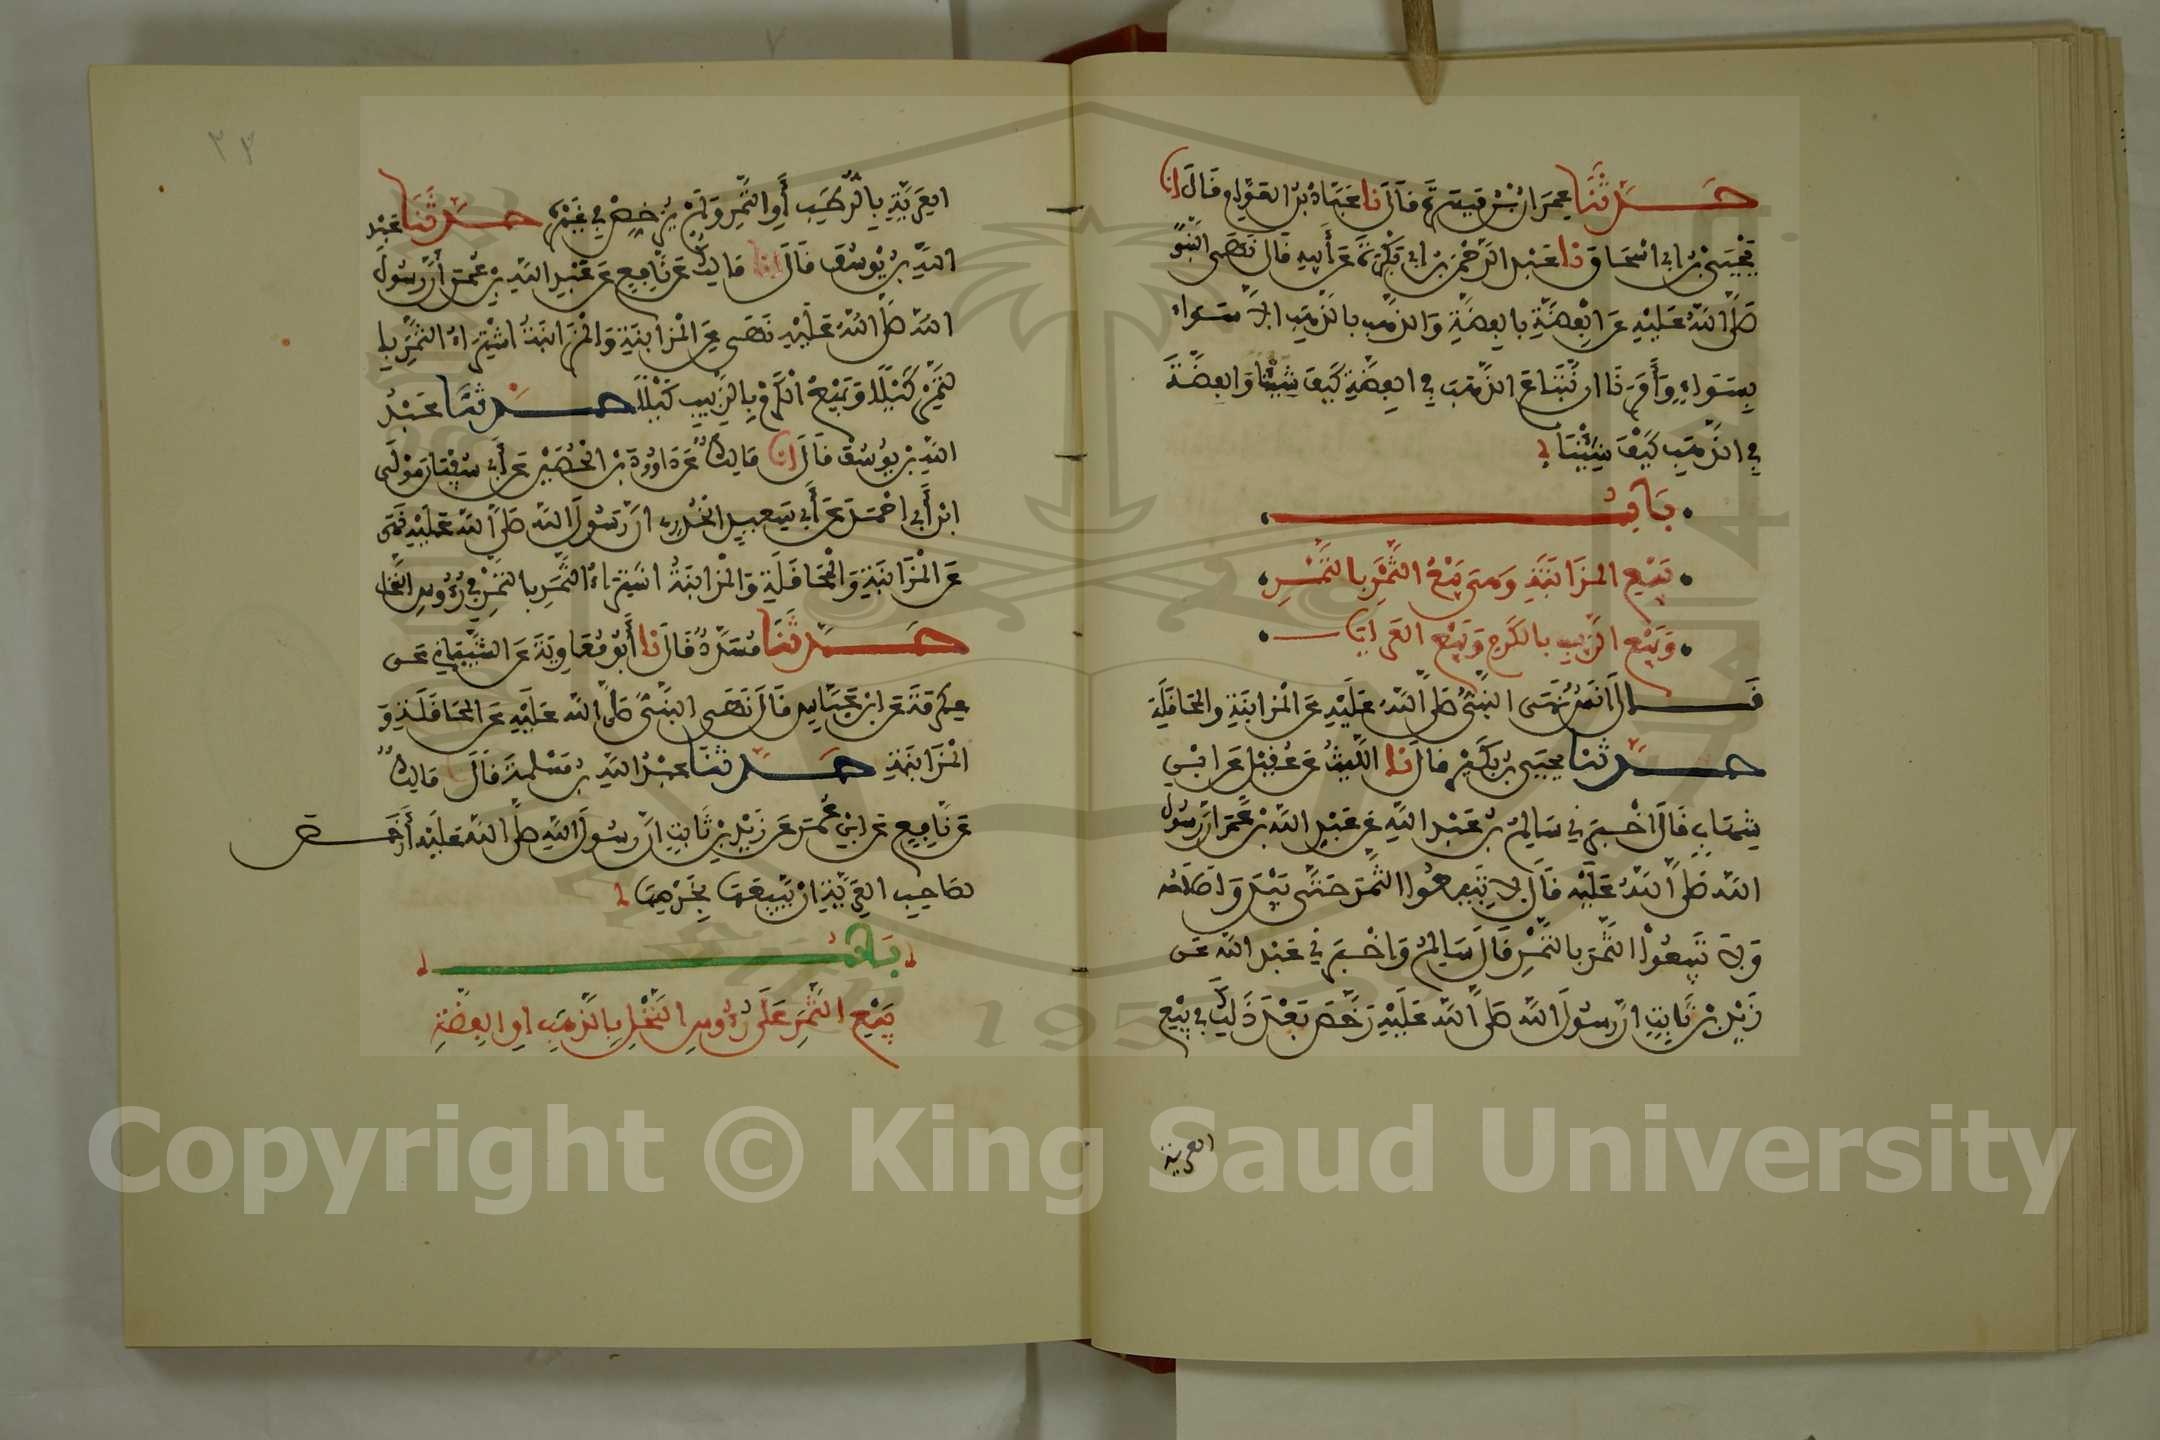 حدثنا عمران بن ميسرة قال نا عباد بن العوام قال انا
يحيى بن ابي اسحاق نا عبد الرحمن بن ابي بكرة عن أبيه قال نهى النبي
صلى الله عليه عن الفضة بالفضة والذهب بالذهب الا سواء
بسواء وأمرنا ان نبتاع الذهب في الفضة كيف شيئنا والفضة
في الذهب كيف شيئنا
باب
بيع المزابنة وهي بيع الثمر بالتمر
وبيع الزبيب بالكرم وبيع العرايا
قال انس نهى النبي صلى الله عليه عن المزابنة والمحاقلة
حدثنا يحيى بن بكير قال نا الليث عن عقيل عن ابن
شهاب قال اخبرني سالم بن عبد الله عن عبد الله بن عمر ان رسول
الله صلى الله عليه قال لا تبيعوا الثمر حتى يبدو صلاحه
ولا تبيعوا الثمر بالتمر قال سالم واخبرني عبد الله عن
زيد بن ثابت ان رسول الله صلى الله عليه رخص بعد ذلك في بيع
العرية
٣٣
العرية بالرطب أو التمر ولم يرخص في غيره حدثنا عبد
الله بن يوسف قال انا مالك عن نافع عن عبد الله بن عمر أن رسول
الله صلى الله عليه نهى عن المزابنة والمزابنة اشتراء الثمر با
لتمر كيلا وبيع الكرم بالزبيب كيلا حدثنا عبد
الله بن يوسف قال انا مالك عن داوود بن الحصين عن أبي سفيان مولى
ابن أبي احمد عن أبي سعيد الخدري ان رسول الله صلى الله عليه نهى
عن المزابنة والمحاقلة والمزابنة اشتراء الثمر بالتمر في رؤوس النخل
حدثنا مسدد قال نا أبو معاوية عن الشيباني عن
عكرمة عن ابن عباس قال نهى النبي صلى الله عليه عن المحاقلة و
المزابنة حدثنا عبد الله بن مسلمة قال مالك
عن نافع عن ابن عمر عن زيد بن ثابت ان رسول الله صلى الله عليه أرخص
لصاحب العرية ان يبيعها بخرصها
باب
بيع الثمر على رؤوس النخل بالذهب او الفضة
Copyright © King Saud University
1957